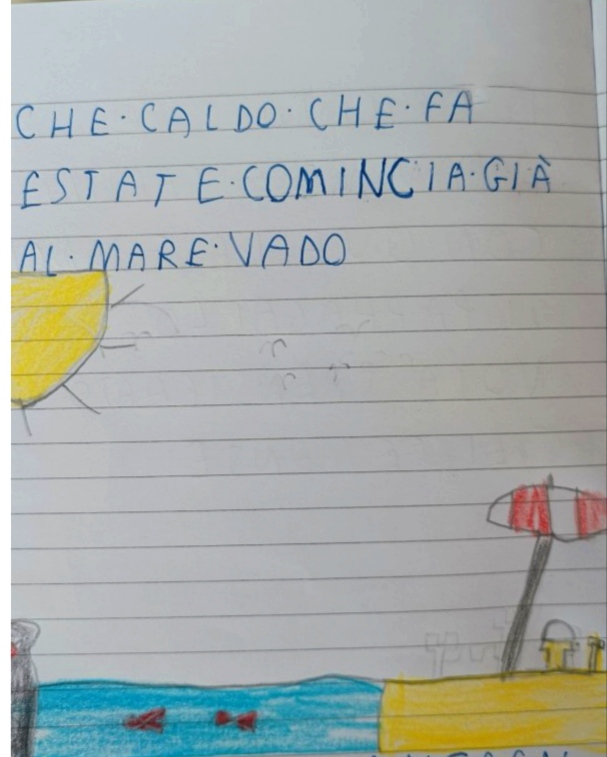 CHE·CALDO·CHE·FA
ESTATE·COMINCIA·GIÀ
AL·MARE·VADO